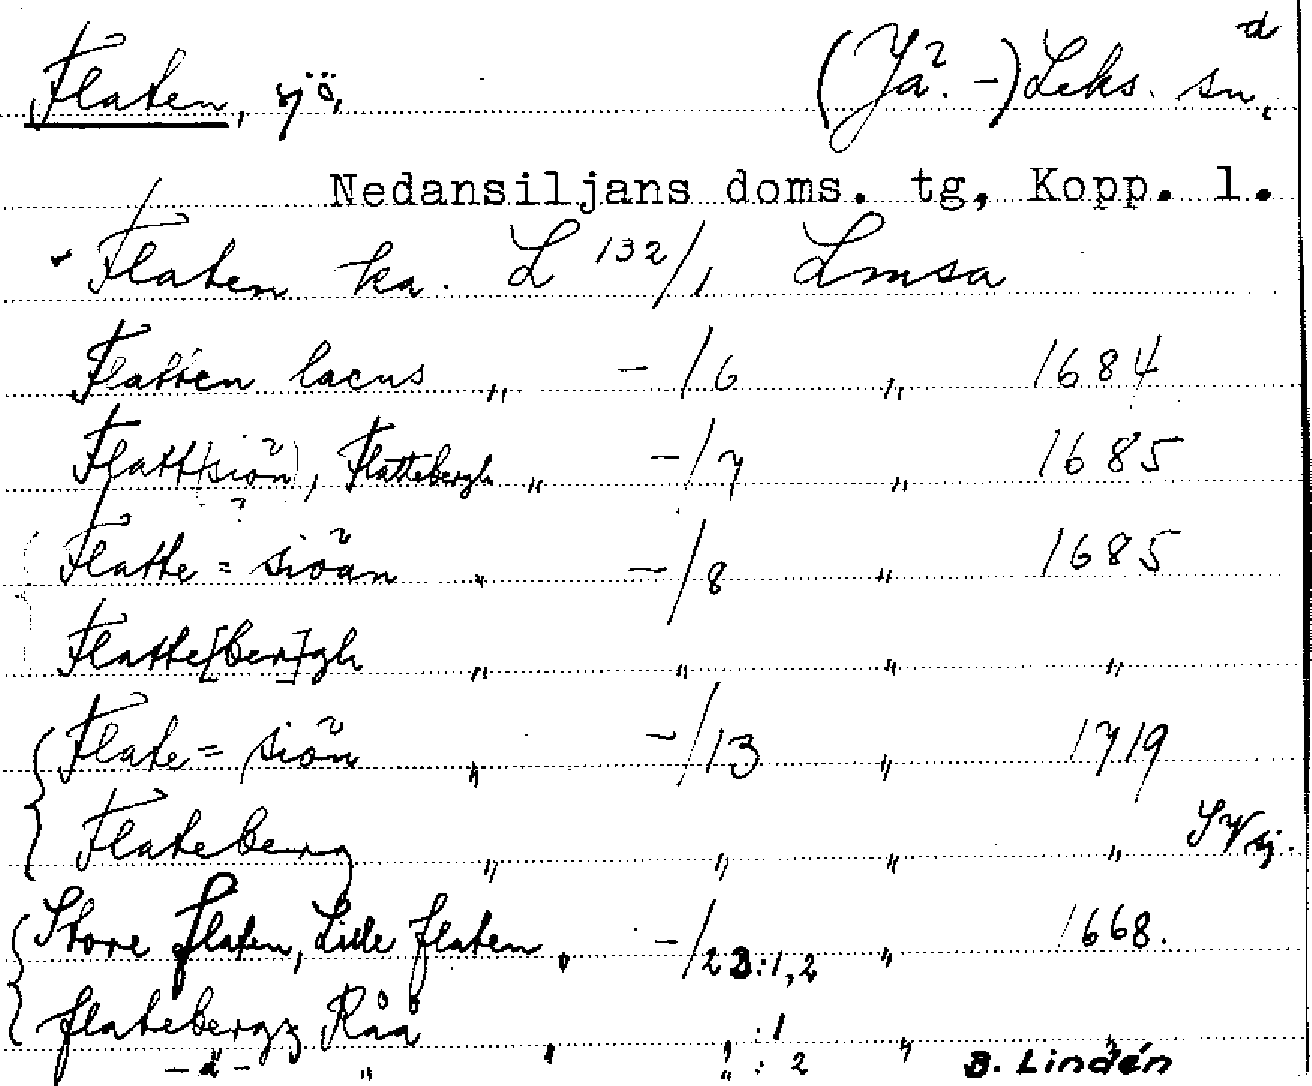 d
Flaten, sjö, (Jä. -) Leks. sn.
Nedansiljans doms. tg, Kopp. l.
Flaten ka. L 132/1, Lmsa
Flatten lacus " -/6 " 1684
Flatt(siön), Flattebergh " -/7 " 1685
Flatte = siöan " -/8 " 1685
Flatte[ber]gh " " " "
Flate = siön " -/13 " 1719
Flateberg " " " "
Store flaten, Lille flaten " -/23:1,2 " 1668.
flatebergz Råå " " :1 " "
-d- " " :2 B. Lindén